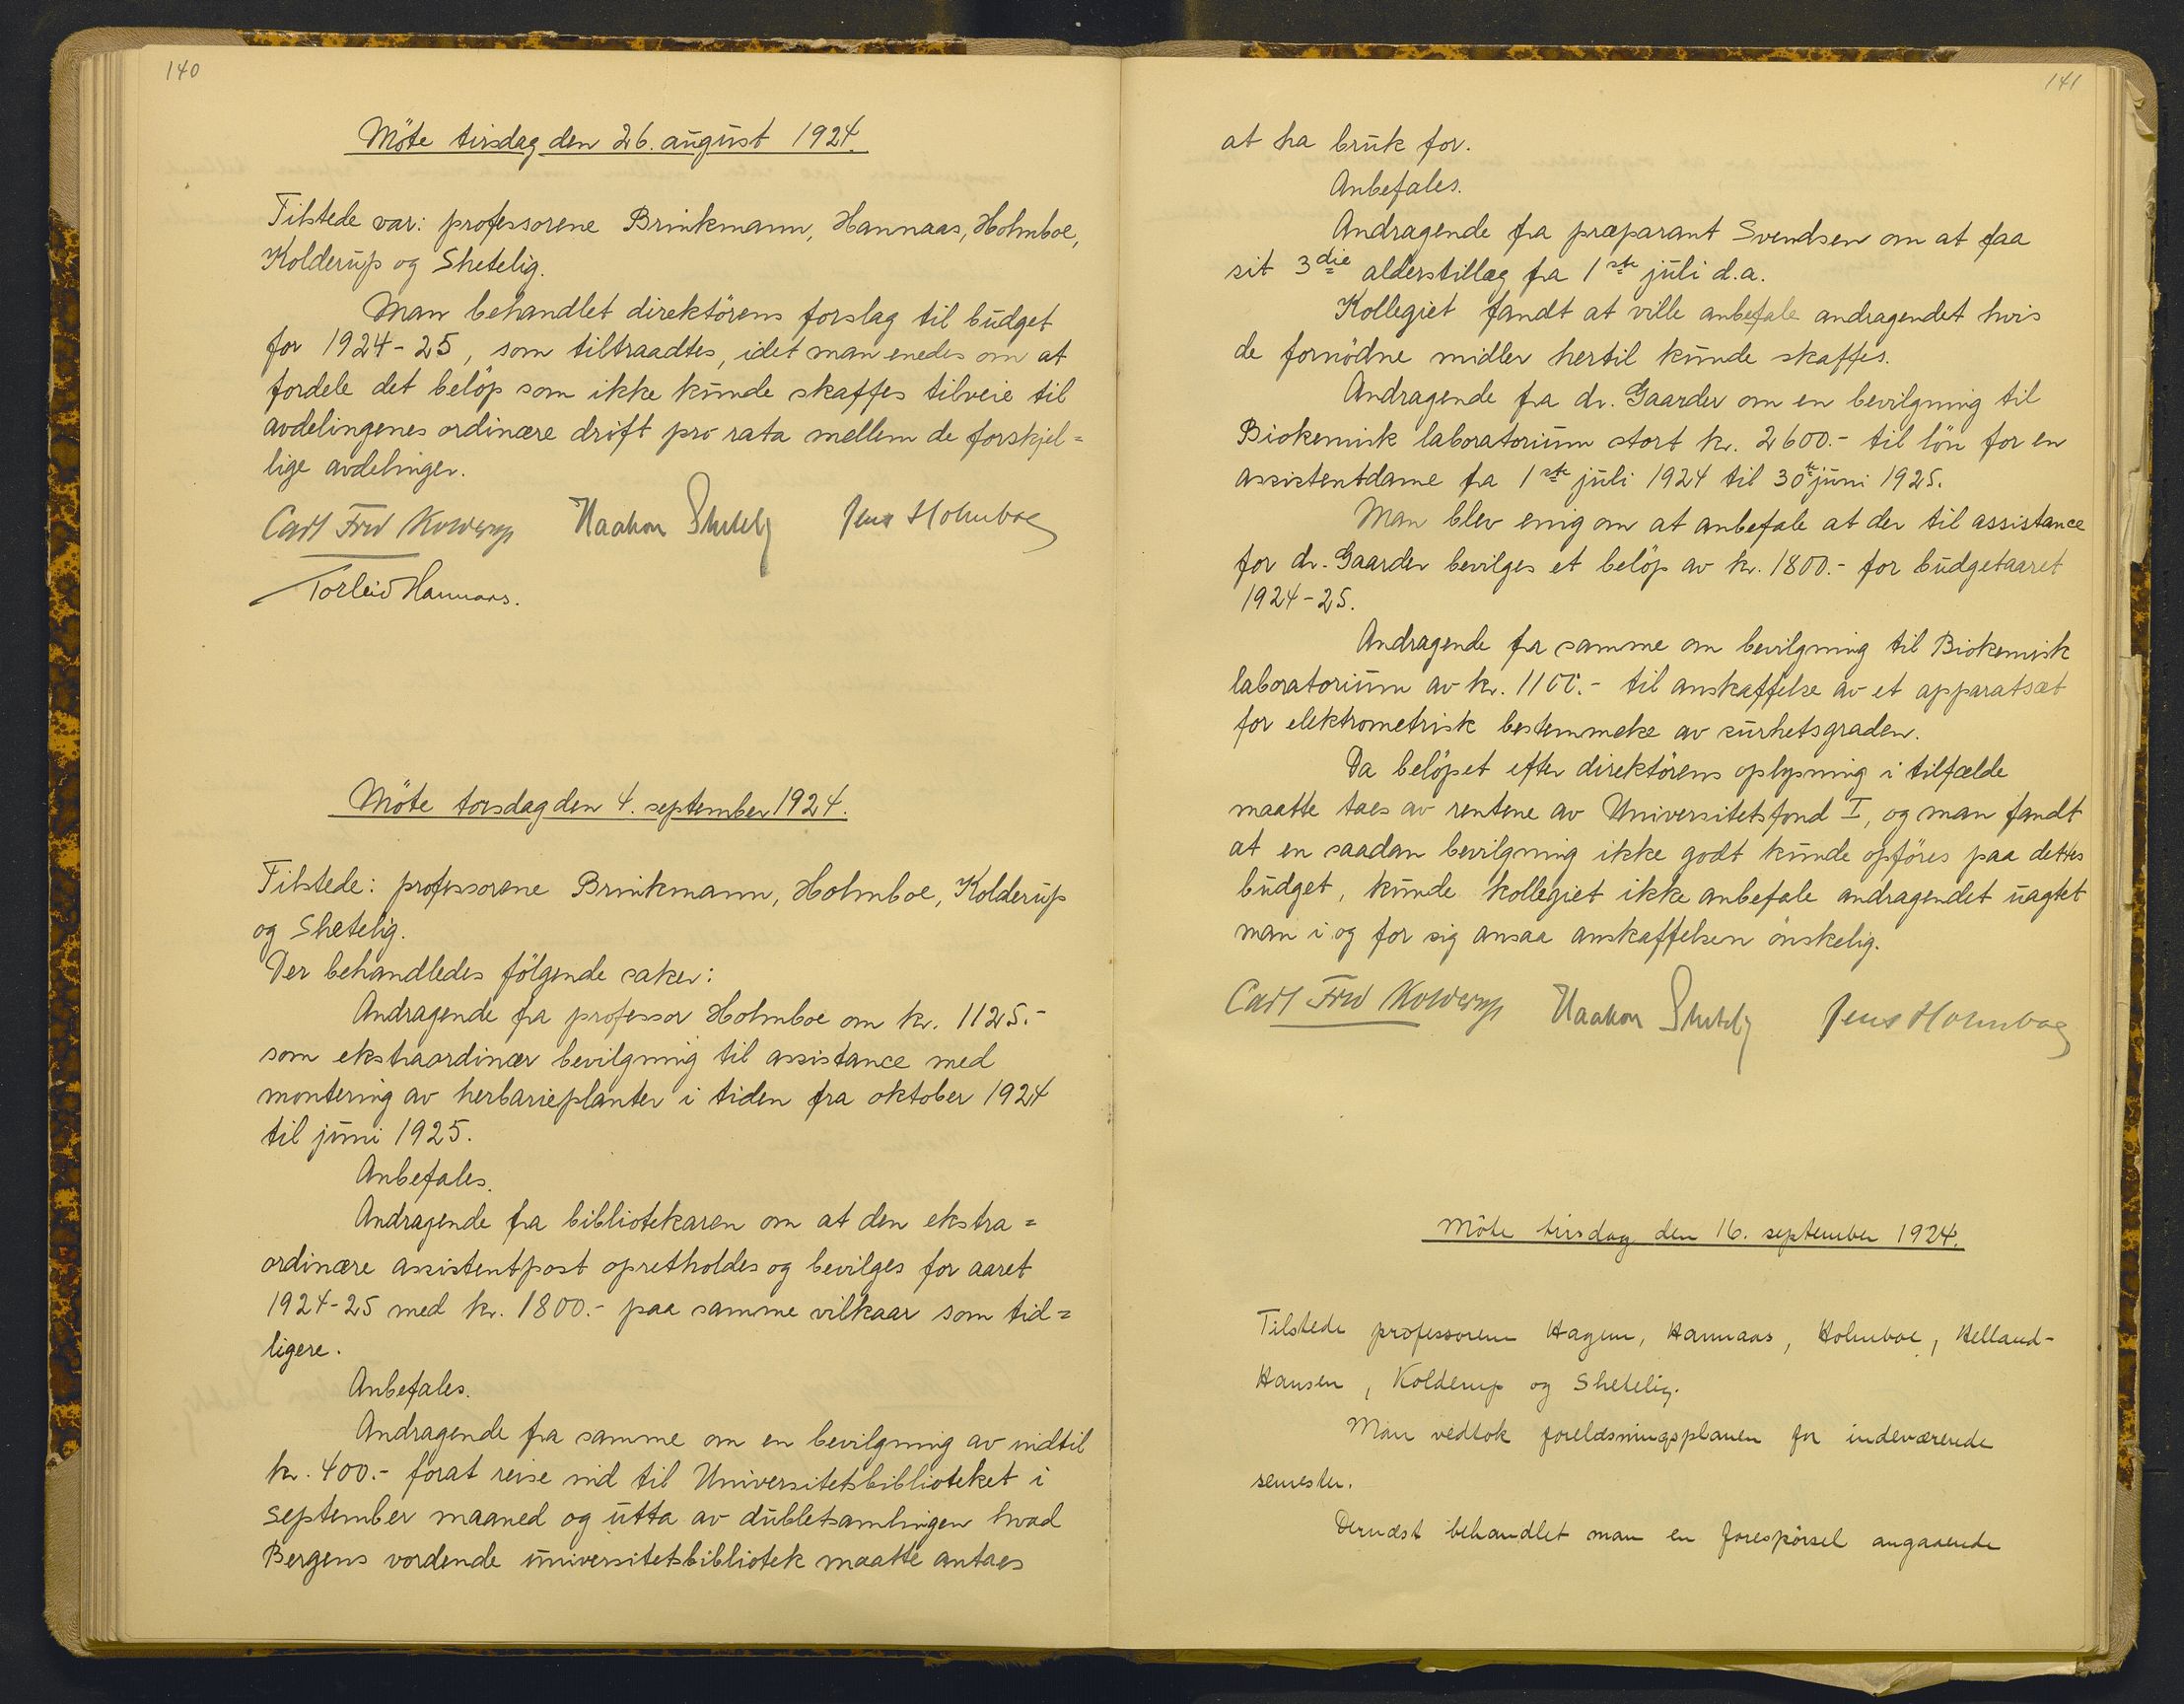 140
Möte tirsdag den 26. august 1924.
Tilstede var: professorene Brinkmann, Hannaas, Holmboe,
Kolderup og Shetelig.
Man behandlet direktörens forslag til budget
for 1924-25, som tiltraadtes, idet man enedes om at
fordele det belöp som ikke kunde skaffes tilveie til
avdelingenes ordinære drift pro rata mellem de forskjel=
lige avdelinger.
Carl Fred Kolderup Haakon Shetelig Jens Holmboe
Torleiv Hannaas.
Möte torsdag den 4. september 1924.
Tilstede: professorene Brinkmann, Holmboe, Kolderup
og Shetelig.
Der behandledes fölgende saker:
Andragende fra professor Holmboe om kr. 1125.-
som ekstraordinær bevilgning til assistance med
montering av herbarieplanter i tiden fra oktober 1924
til juni 1925.
Anbefales.
Andragende fra bibliotekaren om at den ekstra=
ordinære assistentpost opretholdes og bevilges for aaret
1924-25 med kr. 1800.- paa samme vilkaar som tid=
ligere.
Anbefales.
Andragende fra samme om en bevilgning av indtil
kr. 400.- forat reise ind til Universitetsbiblioteket i
september maaned og utta av dubletsamlingen hvad
Bergens vordende universitetsbibliotek maatte antaes
141
at ha bruk for.
Anbefales.
Andragende fra præparant Svendsen om at faa
sit 3die alderstillæg fra 1ste juli d.a.
Kollegiet fandt at ville anbefale andragendet hvis
de fornödne midler hertil kunde skaffes.
Andragende fra dr. Gaarder om en bevilgning til
Biokemisk laboratorium stort kr. 2600.- til lön for en
assistentdame fra 1ste juli 1924 til 30te juni 1925.
Man blev enig om at anbefale at der til assistance
for dr. Gaarder bevilges et belöp av kr. 1800.- for budgetaaret
1924-25.
Andragende fra samme om bevilgning til Biokemisk
laboratorium av kr. 1100.- til anskaffelse av et apparatsæt
for elektrometrisk bestemmelse av surhetsgraden.
Da belöpet efter direktörens oplysning i tilfælde
maatte taes av rentene av Universitetsfond I, og man fandt
at en saadan bevilgning ikke godt kunde opföres paa dettes
budget, kunde kollegiet ikke anbefale andragendet uagtet
man i og for sig ansaa anskaffelsen önskelig.
Carl Fred Kolderup Haakon Shetelig Jens Holmboe
Möte tirsdag den 16. september 1924.
Tilstede professorene Hagem, Hannaas, Holmboe, Helland-
Hansen, Kolderup og Shetelig.
Man vedtok forelæsningsplanen for indeværende
semester.
Dernæst behandlet man en forespörsel angaaende